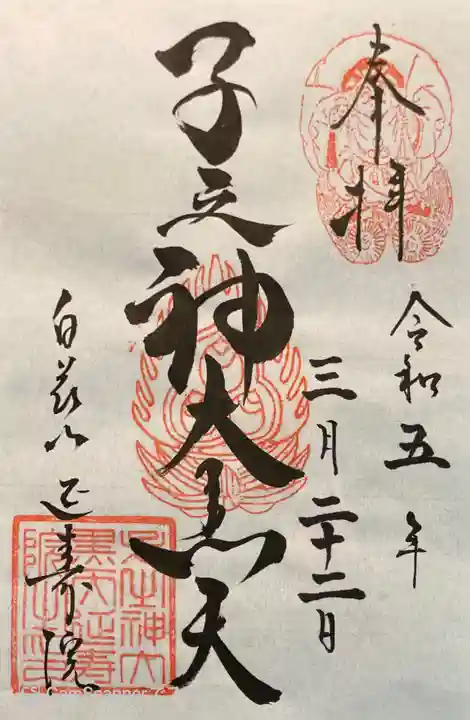 奉拝
令和五年
三月二十二日
子之神大黒天
白花山
延寿院
CamScanner